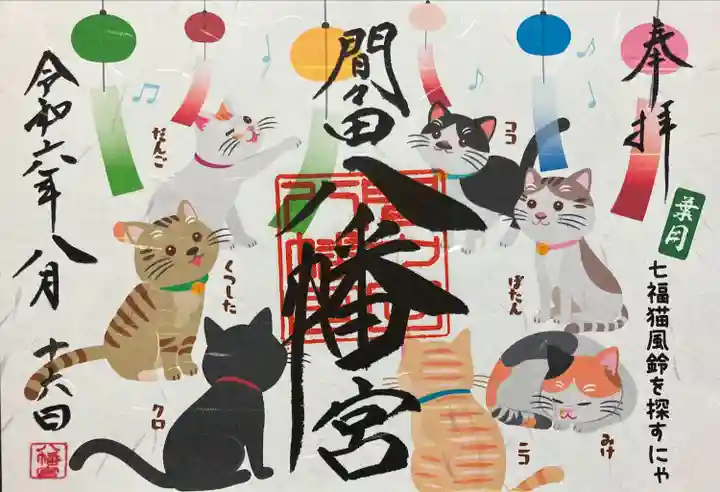 奉拝
葉月
七福猫風鈴を探すにゃ
間々田
八幡宮
令和六年八月
十六日
八幡宮
だんご
ココ
くつした
ぼたん
クロ
ニコ
みけ